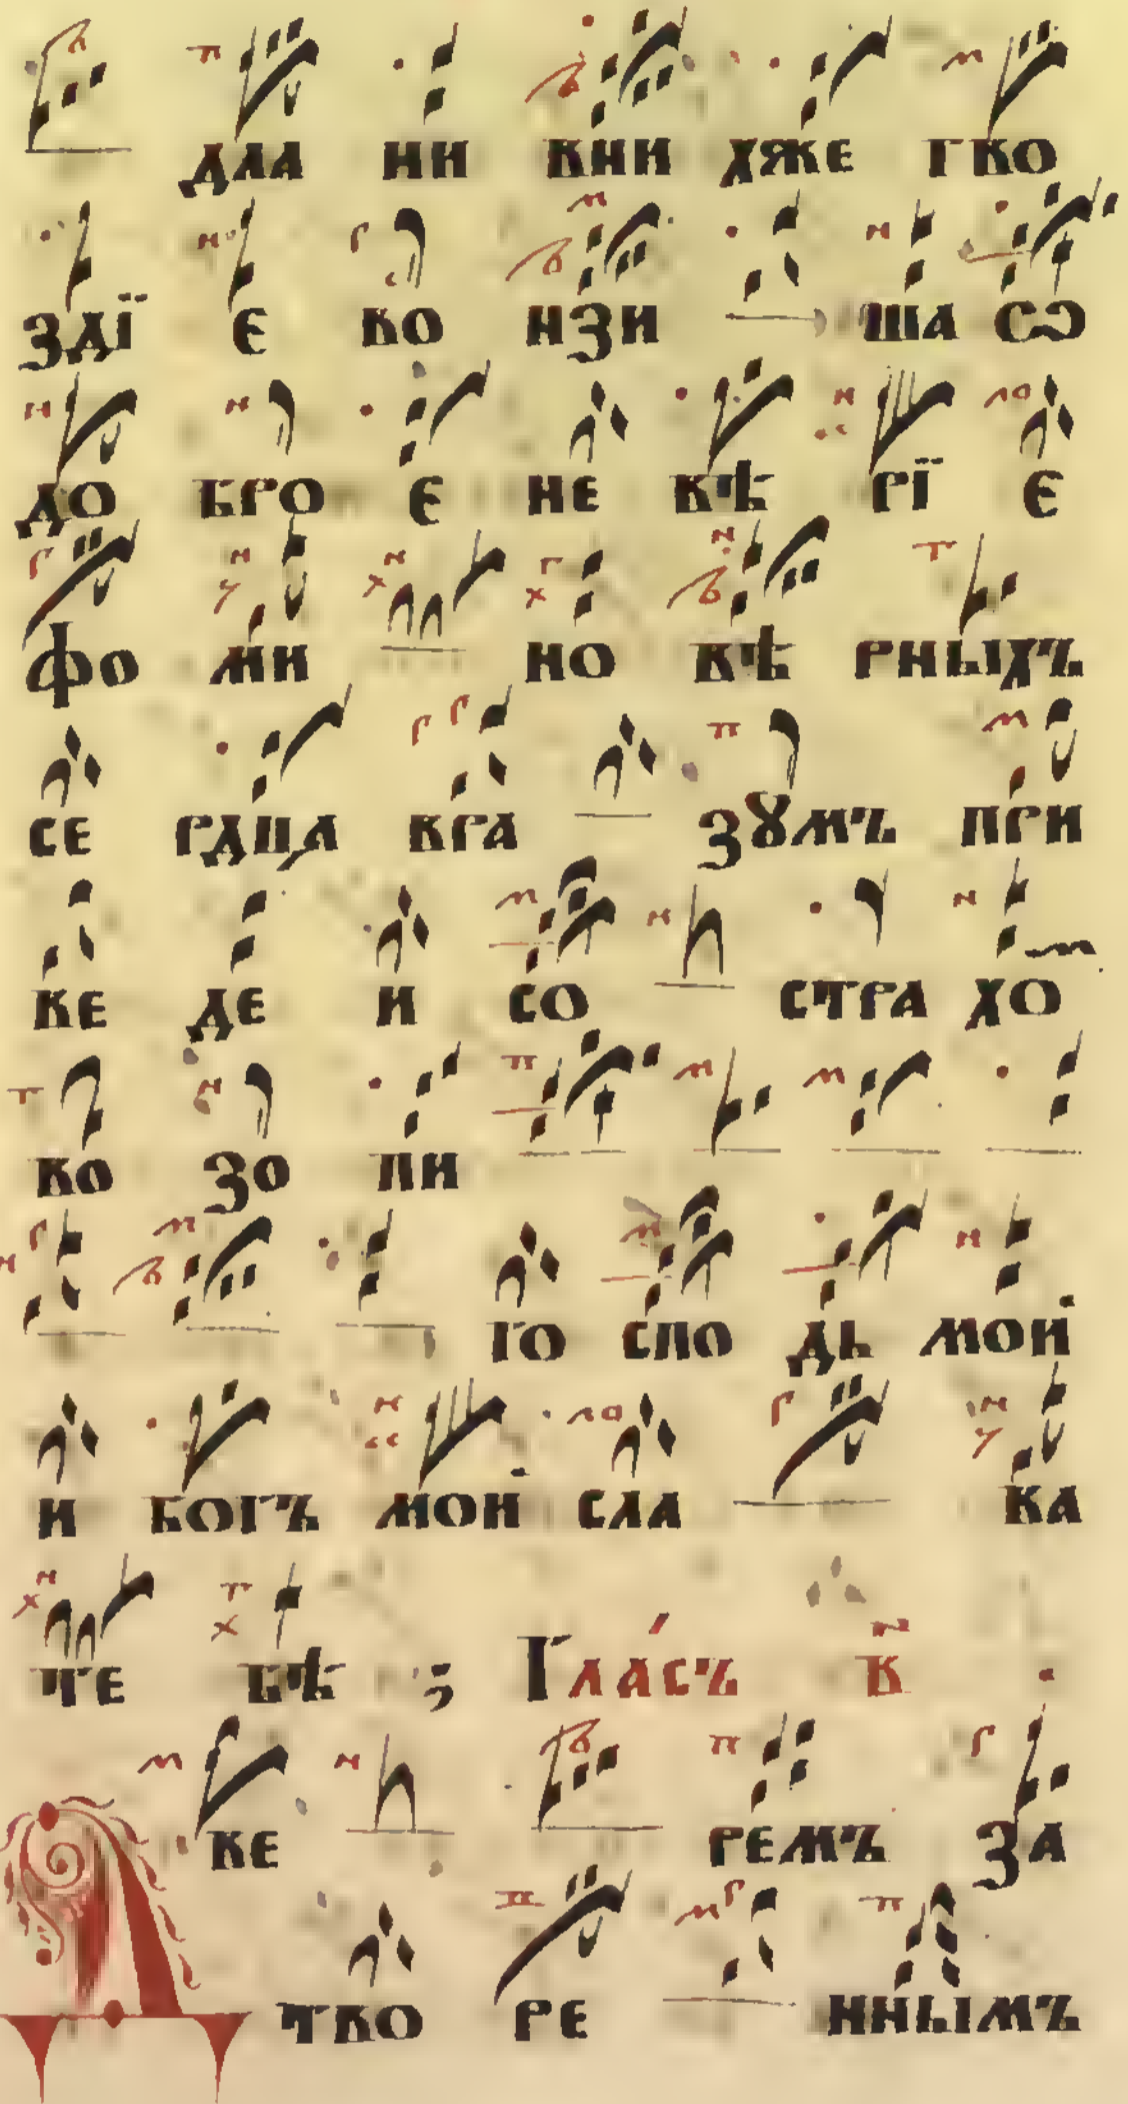 дла ни вни хже гво
здїї є во нзи ша сѻ
до бро є не вѣ рїї є
фо ми но вѣ рныхъ
се рдца вра зꙋмъ при
ве де и со стра хо
во зо пи
го спо дь мой
и богъ мой сла ва
те бѣ ; Гла́съ в҃
Д ве ремъ за
тво ре ннымъ